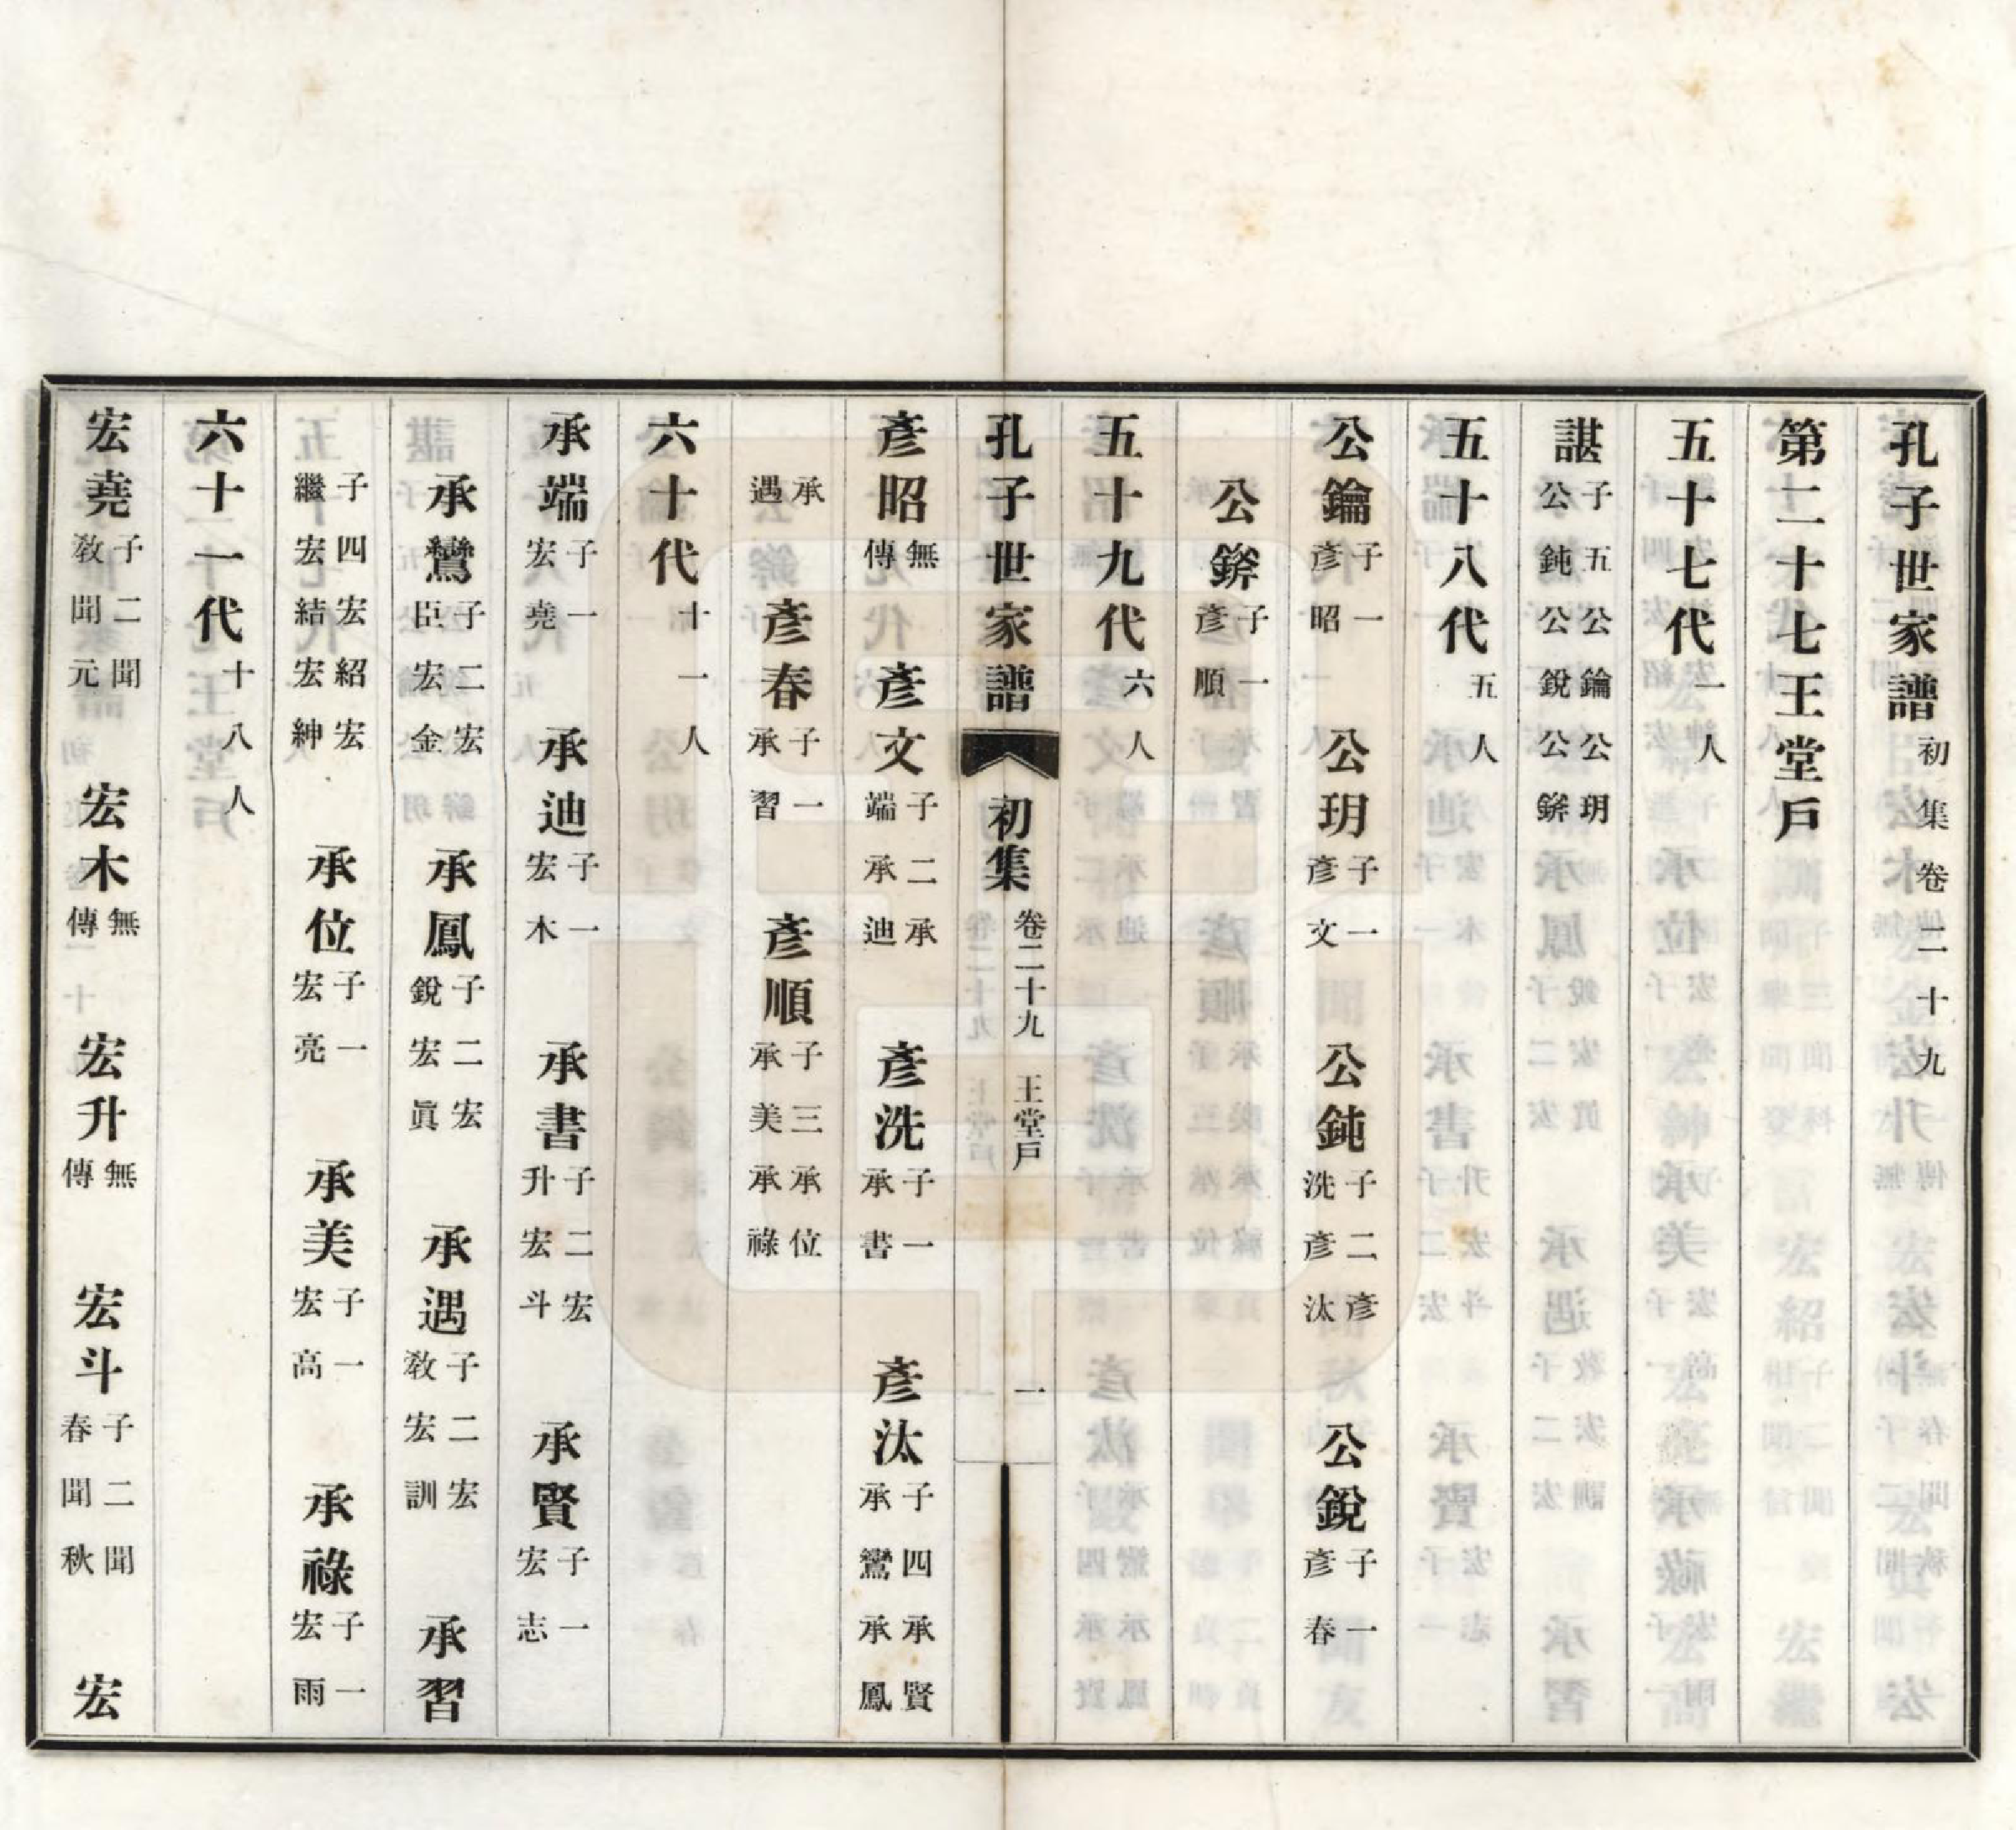 孔子世家譜 初集卷二十九
第二十七王堂戶
五十七代 一人
諶 子五公鑰公玥公鈍公銳公
五十八代 五人
公鑰 子一彥昭 公玥 子一彥文 公鈍 子二彥洗彥汰 公銳 子一彥春
公 子一彥順
五十九代 六人
孔子世家譜 初集 卷二十九 王堂戶 一
彥昭 無傳 彥文 子二承端承迪 彥洗 子一承書 彥汰 子四承賢承鸞承鳳
承遇 彥春 子一承習 彥順 子三承位承美承祿
六十代 十一人
承端 子一宏堯 承迪 子一宏木 承書 子二宏升宏斗 承賢 子一宏志
承鸞 子二宏臣宏金 承鳳 子二宏銳宏眞 承遇 子二宏敎宏訓 承習
子四宏紹宏繼宏結宏紳 承位 子一宏亮 承美 子一宏高 承祿 子一宏雨
六十一代 十八人
宏堯 子二聞敎聞元 宏木 無傳 宏升 無傳 宏斗 子二聞春聞秋 宏